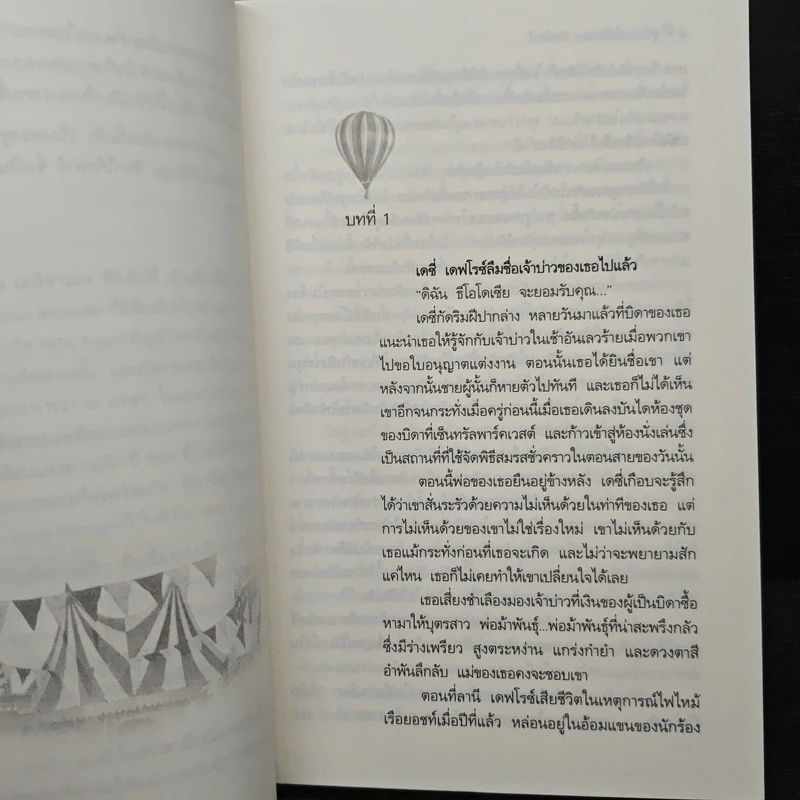 บทที่ 1
เดซี่ เดฟโรซ์ลืมชื่อเจ้าบ่าวของเธอไปแล้ว
“ดิฉัน ธีโอโดเซีย จะยอมรับคุณ...”
เดซี่กัดริมฝีปากล่าง หลายวันมาแล้วที่บิดาของเธอ
แนะนำเธอให้รู้จักกับเจ้าบ่าวในเช้าอันเลวร้ายเมื่อพวกเขา
ไปขอใบอนุญาตแต่งงาน ตอนนั้นเธอได้ยินชื่อเขา แต่
หลังจากนั้นชายผู้นั้นก็หายตัวไปทันที และเธอก็ไม่ได้เห็น
เขาอีกจนกระทั่งเมื่อครู่ก่อนนี้เมื่อเธอเดินลงบันไดห้องชุด
ของบิดาที่เซ็นทรัลพาร์คเวสต์ และก้าวเข้าสู่ห้องนั่งเล่นซึ่ง
เป็นสถานที่ที่ใช้จัดพิธีสมรสชั่วคราวในตอนสายของวันนั้น
ตอนนี้พ่อของเธอยืนอยู่ข้างหลัง เดซี่เกือบจะรู้สึก
ได้ว่าเขาสั่นระรัวด้วยความไม่เห็นด้วยในท่าทีของเธอ แต่
การไม่เห็นด้วยของเขาไม่ใช่เรื่องใหม่ เขาไม่เห็นด้วยกับ
เธอแม้กระทั่งก่อนที่เธอจะเกิด และไม่ว่าจะพยายามสัก
แค่ไหน เธอก็ไม่เคยทำให้เขาเปลี่ยนใจได้เลย
เธอเสี่ยงชำเลืองมองเจ้าบ่าวที่เงินของผู้เป็นบิดาซื้อ
หามาให้บุตรสาว พ่อม้าพันธุ์...พ่อม้าพันธุ์ที่น่าสะพรึงกลัว
ซึ่งมีร่างเพรียว สูงตระหง่าน แกร่งกำยำ และดวงตาสี
อำพันลึกลับ แม่ของเธอคงจะชอบเขา
ตอนที่ลานี เดฟโรซ์เสียชีวิตในเหตุการณ์ไฟไหม้
เรือยอชท์เมื่อปีที่แล้ว หล่อนอยู่ในอ้อมแขนของนักร้อง